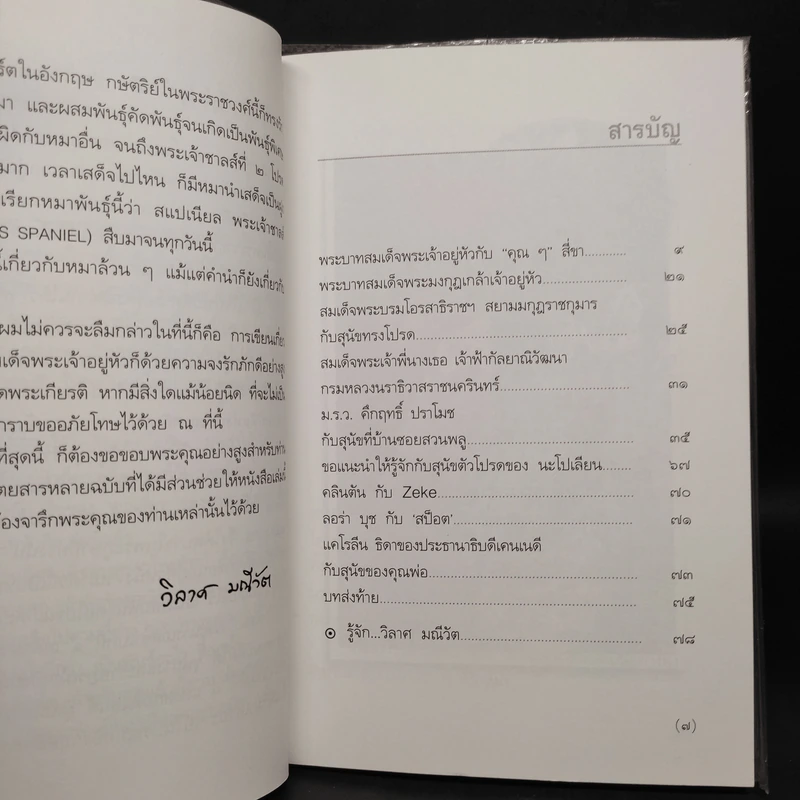 ร์ตในอังกฤษ กษัตริย์ในพระราชวงศ์นี้ก็ทรง
มา และผสมพันธุ์คัดพันธุ์จนเกิดเป็นพันธุ์
ผิดกับหมาอื่น จนถึงพระเจ้าชาลส์ที่ ๒ โปร
มาก เวลาเสด็จไปไหน ก็มีหมานำเสด็จเป็น
เรียกหมาพันธุ์นี้ว่า สแปเนียล พระเจ้าชาลส์
S SPANIEL) สืบมาจนทุกวันนี้
เกี่ยวกับหมาล้วน ๆ แม้แต่คำนำก็ยังเกี่ยวกับ
ผมไม่ควรจะลืมกล่าวในที่นี้ก็คือ การเขียนเกี่ยว
มเด็จพระเจ้าอยู่หัวก็ด้วยความจงรักภักดีอย่าง
ดพระเกียรติ หากมีสิ่งใดแม้น้อยนิด ที่จะไม่เป็น
กราบขออภัยโทษไว้ด้วย ณ ที่นี้
ที่สุดนี้ ก็ต้องขอขอบพระคุณอย่างสูงสำหรับท่าน
ตยสารหลายฉบับที่ได้มีส่วนช่วยให้หนังสือเล่มนี้
้องจารึกพระคุณของท่านเหล่านั้นไว้ด้วย
วิลาศ มณีวัต
สารบัญ
พระบาทสมเด็จพระเจ้าอยู่หัวกับ “คุณ ๆ” สี่ขา............ ๙
พระบาทสมเด็จพระมงกุฎเกล้าเจ้าอยู่หัว.................... ๒๑
สมเด็จพระบรมโอรสาธิราชฯ สยามมกุฎราชกุมาร
กับสุนัขทรงโปรด.................... ๒๕
สมเด็จพระเจ้าพี่นางเธอ เจ้าฟ้ากัลยาณิวัฒนา
กรมหลวงนราธิวาสราชนครินทร์.................... ๓๑
ม.ร.ว. คึกฤทธิ์ ปราโมช
กับสุนัขที่บ้านซอยสวนพลู.................... ๓๕
ขอแนะนำให้รู้จักกับสุนัขตัวโปรดของ นะโปเลียน........ ๖๗
คลินตัน กับ Zeke.................... ๗๐
ลอร่า บุช กับ ‘สป็อต’.................... ๗๑
แคโรลีน ธิดาของประธานาธิบดีเคนเนดี
กับสุนัขของคุณพ่อ.................... ๗๓
บทส่งท้าย.................... ๗๕
⊙ รู้จัก...วิลาศ มณีวัต.................... ๗๘
(๗)